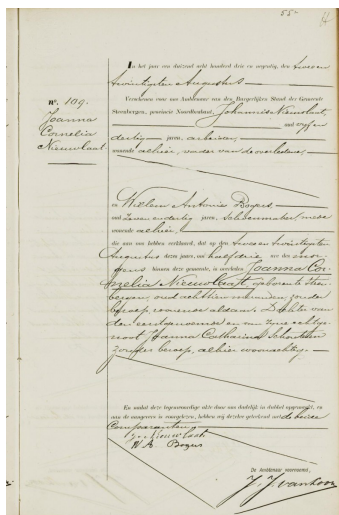 55
No. 109.
Joanna
Cornelia
Nieuwlaat
In het jaar een duizend acht honderd drie en negentig, den twee en
twintigsten Augustus
Verschenen voor ons Ambtenaar van den Burgerlijken Stand der Gemeente
Steenbergen, provincie Noordbrabant, Johannis Nieuwlaat,
oud vijf en
dertig jaren, arbeider,
wonende alhier, vader van de overledene,
en Willem Antonie Bogers
oud zeven en dertig jaren, schoenmaker, mede
wonende alhier,
die aan ons hebben verklaard, dat op den twee en twintigsten
Augustus dezes jaars, om half drie ure des mor-
gens binnen deze gemeente, is overleden Joanna Cor-
nelia Nieuwlaat, geboren te Steen-
bergen, oud achttien maanden, zonder
beroep, wonende aldaar. Dochter van
den eerstgenoemde en van zijne echtge-
noot Joanna Catharina
zonder beroep, alhier woonachtig.
En nadat deze tegenwoordige akte door ons dadelijk in dubbel opgemaakt, en
aan de aangevers is voorgelezen, hebben wij dezelve geteekend met de beide
Comparanten.
Nieuwlaat
W. A. Bogers
De Ambtenaar voornoemd,
J. J. van Loon